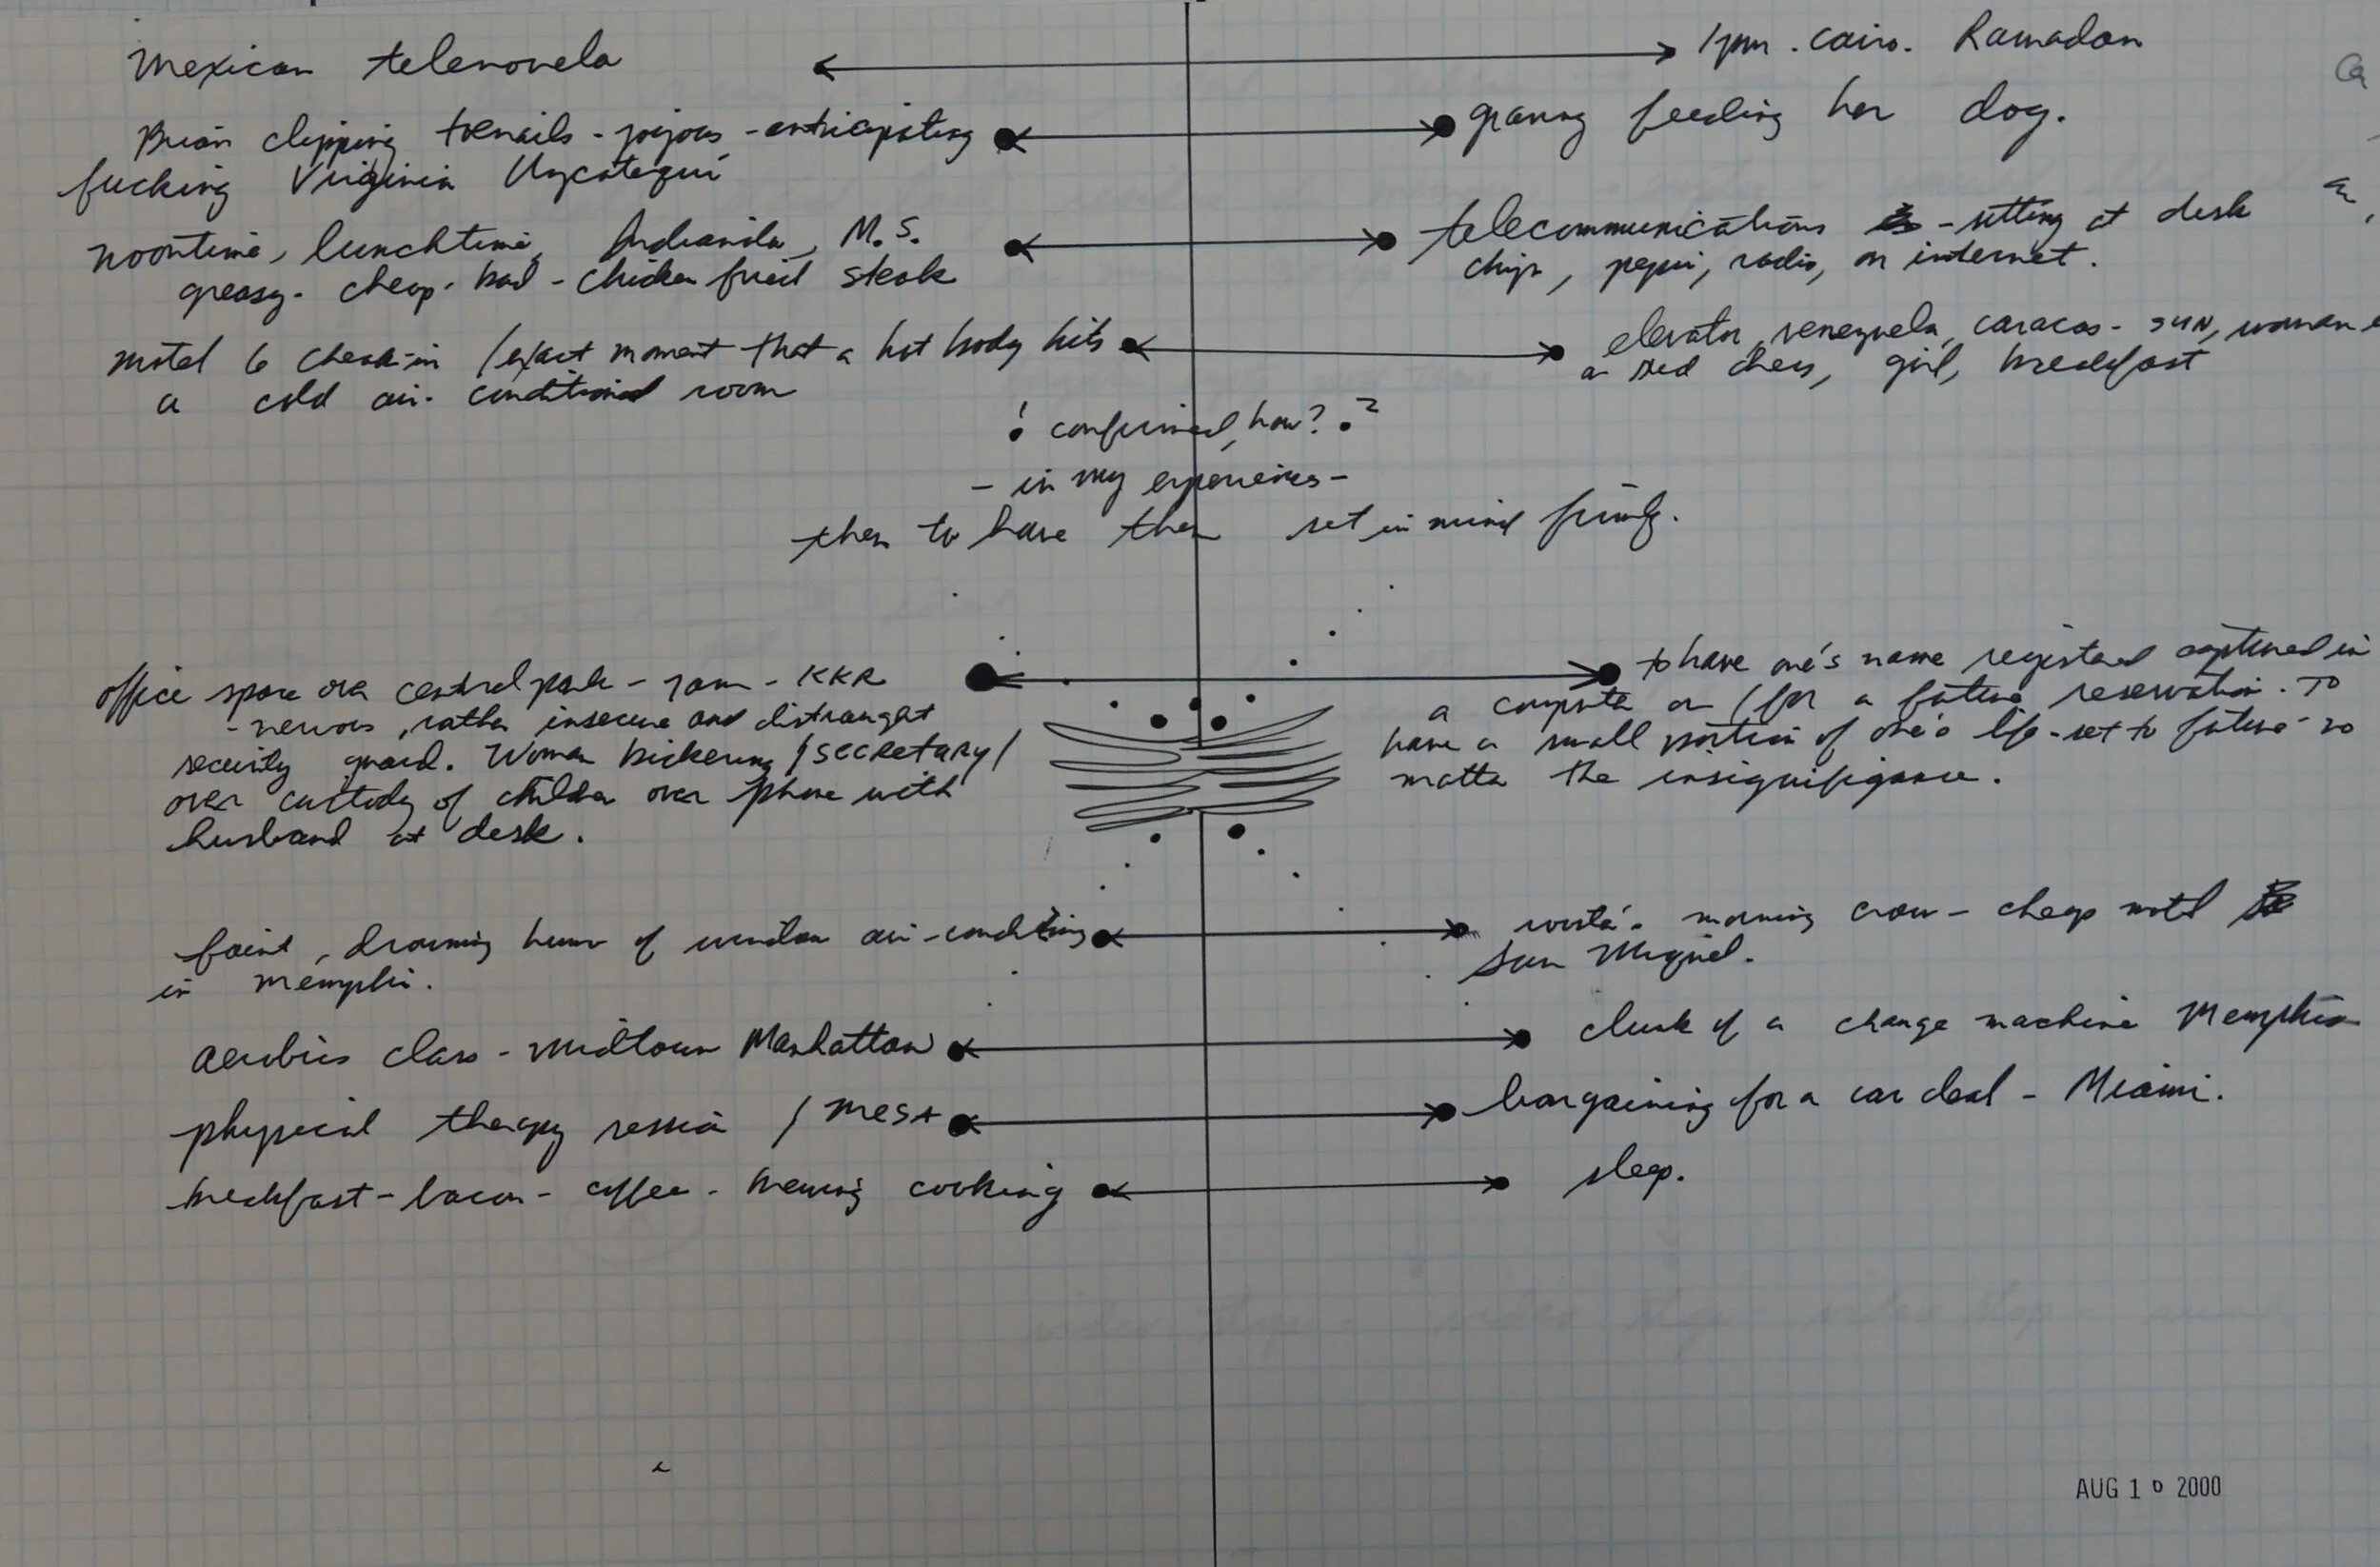 Mexican telenovela
1pm . Cairo. Ramadan
Brian clipping toenails - joyous - anticipating
fucking Virginia
granny feeding her dog.
noontime, lunchtime, Indianola, M.S.
greasy - cheap - bad - chicken fried steak
telecommunications - sitting at desk
chips, pepsi, radio, on internet.
motel 6 check-in / exact moment that a hot body hits
a cold air-conditioned room
elevator, venezuela, caracas - sun, woman
a red dress, girl, breakfast
! confirmed, how? ?
- in my experiences -
then to have them set in mind firmly.
office space over central park - 7am - KKR
- nervous, rather insecure and distraught
security guard. Woman bickering / SECRETARY /
over custody of children over phone with
husband at desk.
to have one's name registered captured in
a computer on / for a future reservation. TO
have a small portion of one's life - set to future - no
matter the insignifigance.
faint, droning hum of window air-conditioning
in memphis.
morning crow - cheap motel
San Miguel.
aerobics class - midtown Manhattan
clunk of a change machine Memphis
physical therapy session / MESA
bargaining for a car deal - Miami.
breakfast - bacon - coffee - cooking
sleep.
AUG 10 2000